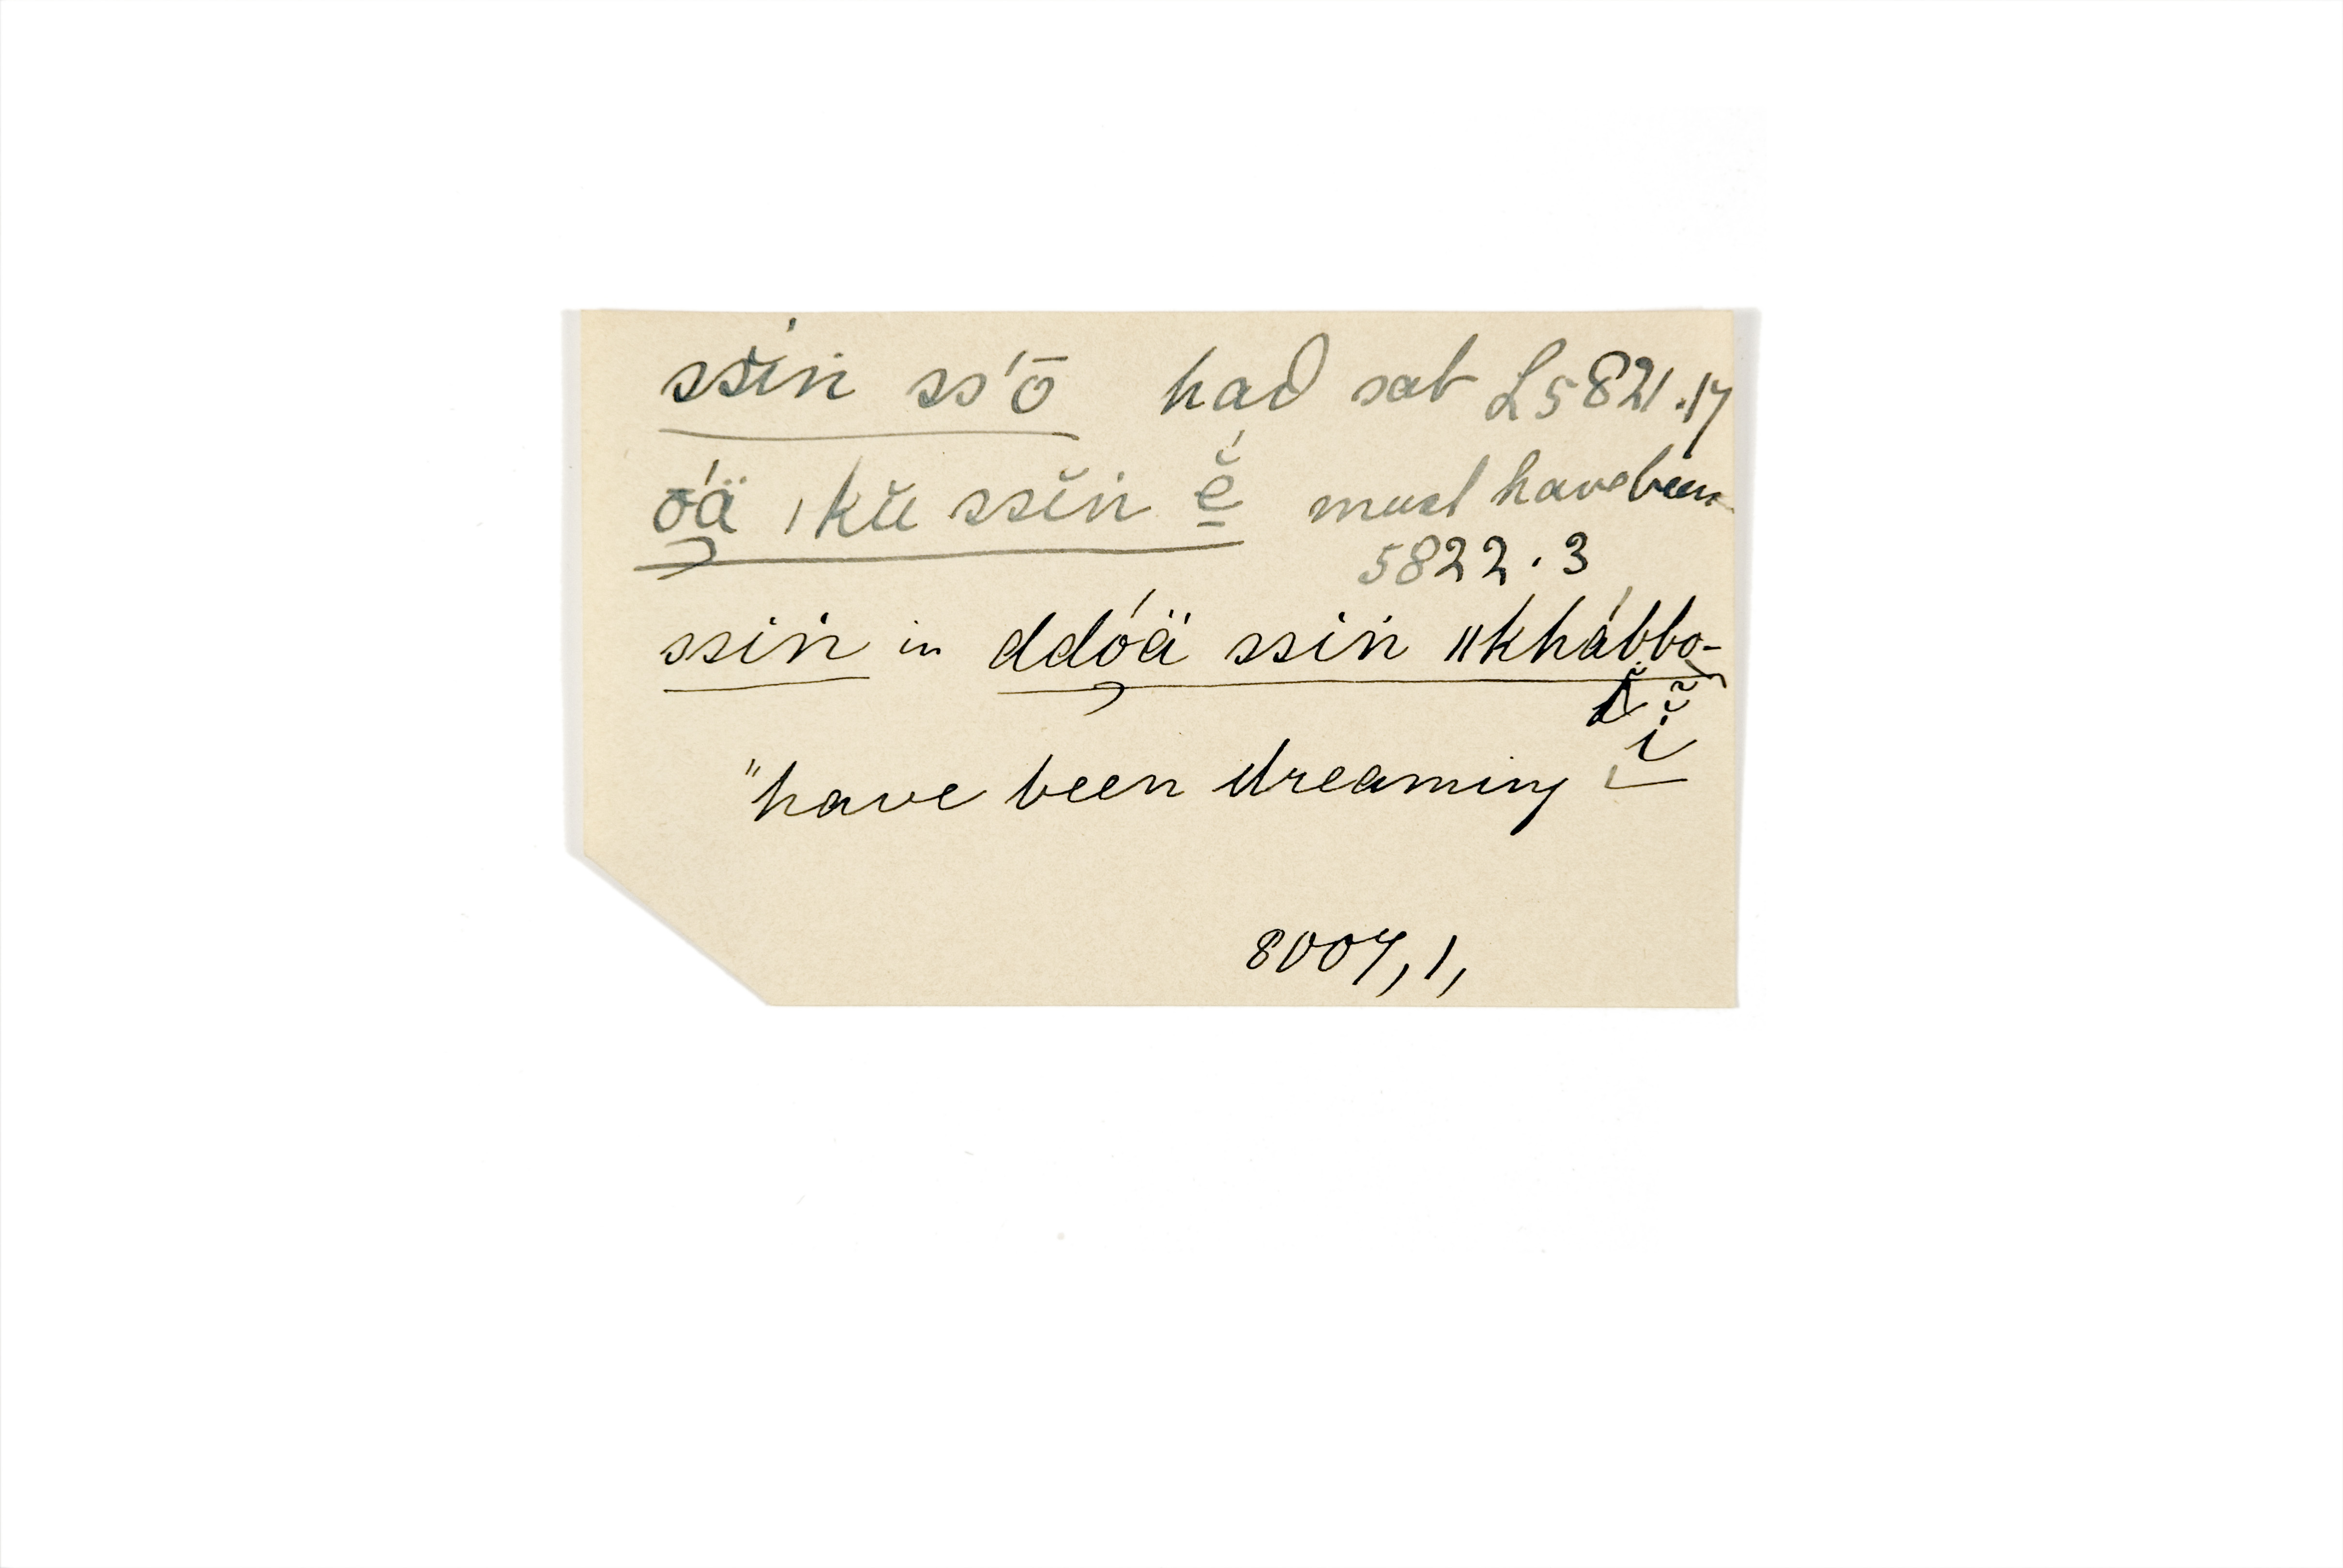 ssĭń ss'ō had sat L5821.17
ō´ä ˌkŭ ssĭń ĕ̱́ must have been
5822.3
ssiṅ in ddóä ssiṅ ǁkhábbo-
ĭ
"have been dreaming
8007,1,